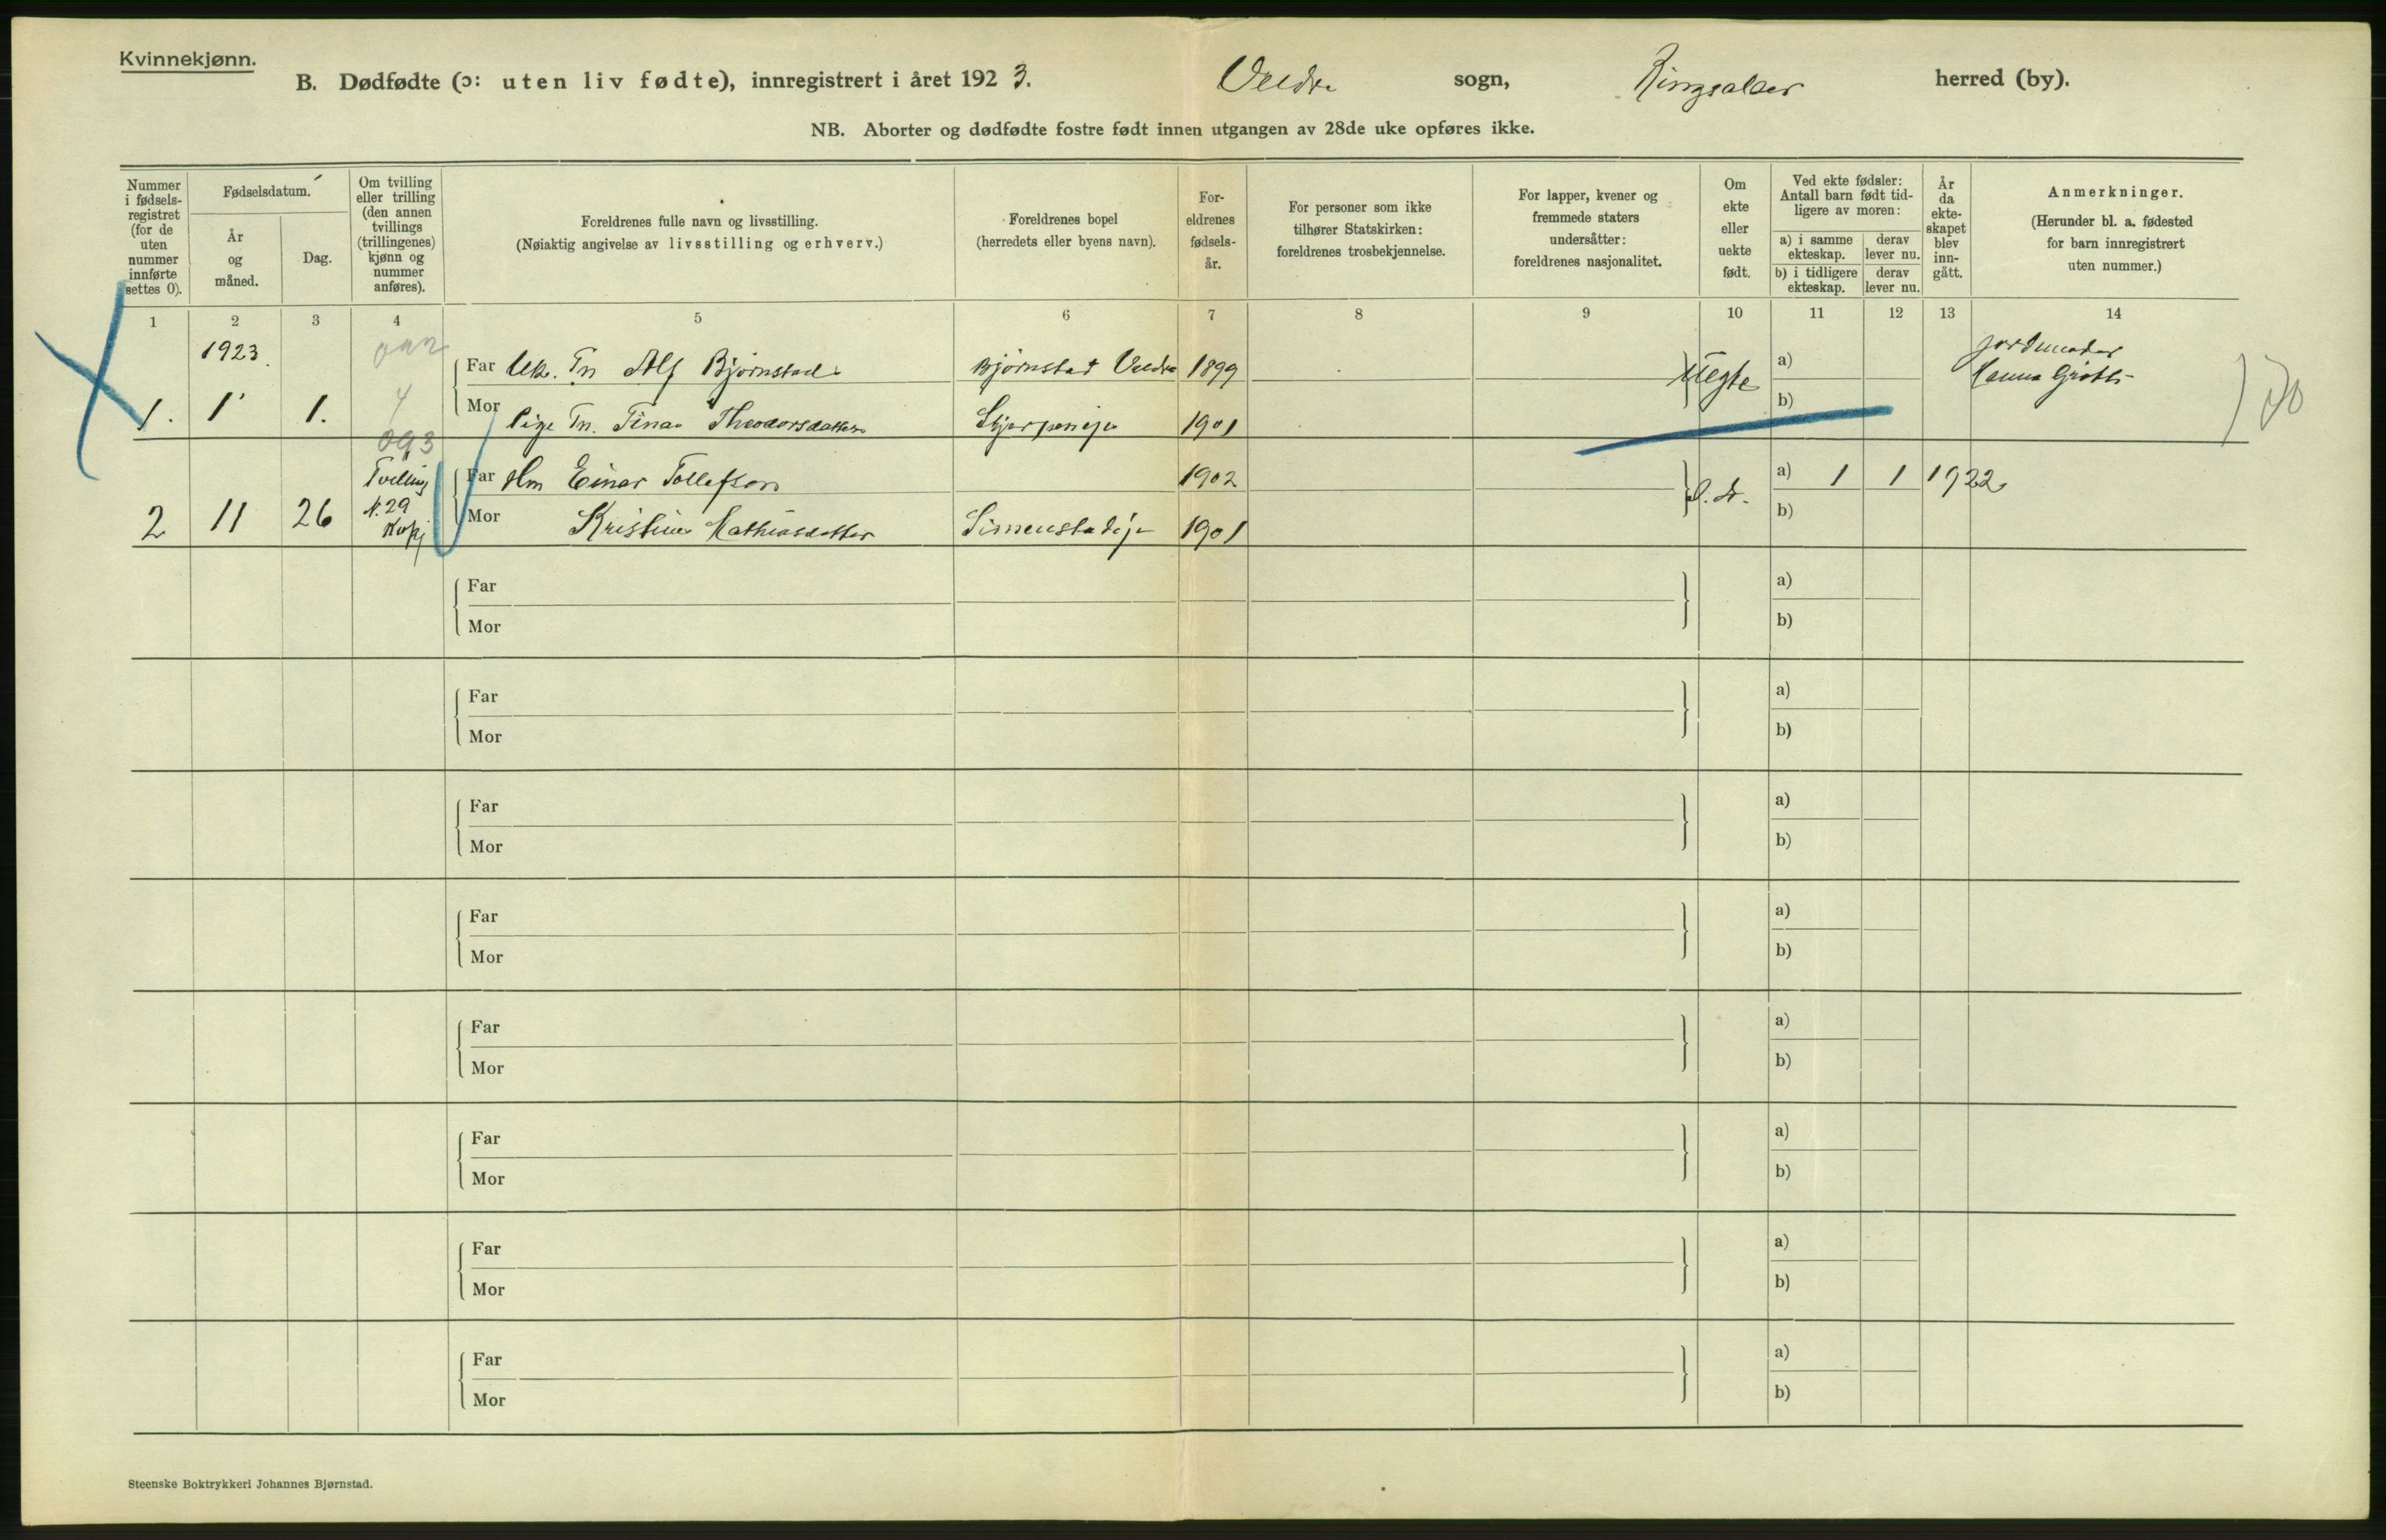 Kvinnekjønn.
B. Dødfødte (ɔ: uten liv fødte), innregistrert i året 1923. Veldre sogn, Ringsaker herred (by).
NB. Aborter og dødfødte fostre født innen utgangen av 28de uke opføres ikke.
Nummer i fødsels-registret (for de uten nummer innførte settes 0).
Fødselsdatum.
År og måned.
Dag.
Om tvilling eller trilling (den annen tvillings (trillingenes) kjønn og nummer anføres).
Foreldrenes fulle navn og livsstilling.
(Nøiaktig angivelse av livsstilling og erhverv.)
Foreldrenes bopel
(herredets eller byens navn).
For-eldrenes fødsels-år.
For personer som ikke tilhører Statskirken: foreldrenes trosbekjennelse.
For lapper, kvener og fremmede staters undersåtter: foreldrenes nasjonalitet.
Om ekte eller uekte født.
Ved ekte fødsler: Antall barn født tid-ligere av moren:
a) i samme ekteskap. derav lever nu.
b) i tidligere ekteskap. derav lever nu.
År da ekte-skapet blev inn-gått.
Anmerkninger.
(Herunder bl. a. fødested for barn innregistrert uten nummer.)
1 2 3 4 5 6 7 8 9 10 11 12 13 14
1923
Far Uk. Tn Alf Bjørnstad Bjørnstad Veldre 1899 Uegte a) Jordmoder
Hanna
1. 1 1. 4 Mor Pige Tn. Tina Theodorsdatter 1901 b)
093
Tvilling Far Hm Einar Tollefsen 1902 a) 1 1 1922
N. 29
2 11 26 Mor Kristine Mathiasdatter Simenstadeje 1901 b)
Far a)
Mor b)
Far a)
Mor b)
Far a)
Mor b)
Far a)
Mor b)
Far a)
Mor b)
Far a)
Mor b)
Far a)
Mor b)
Far a)
Mor b)
Steenske Boktrykkeri Johannes Bjørnstad.